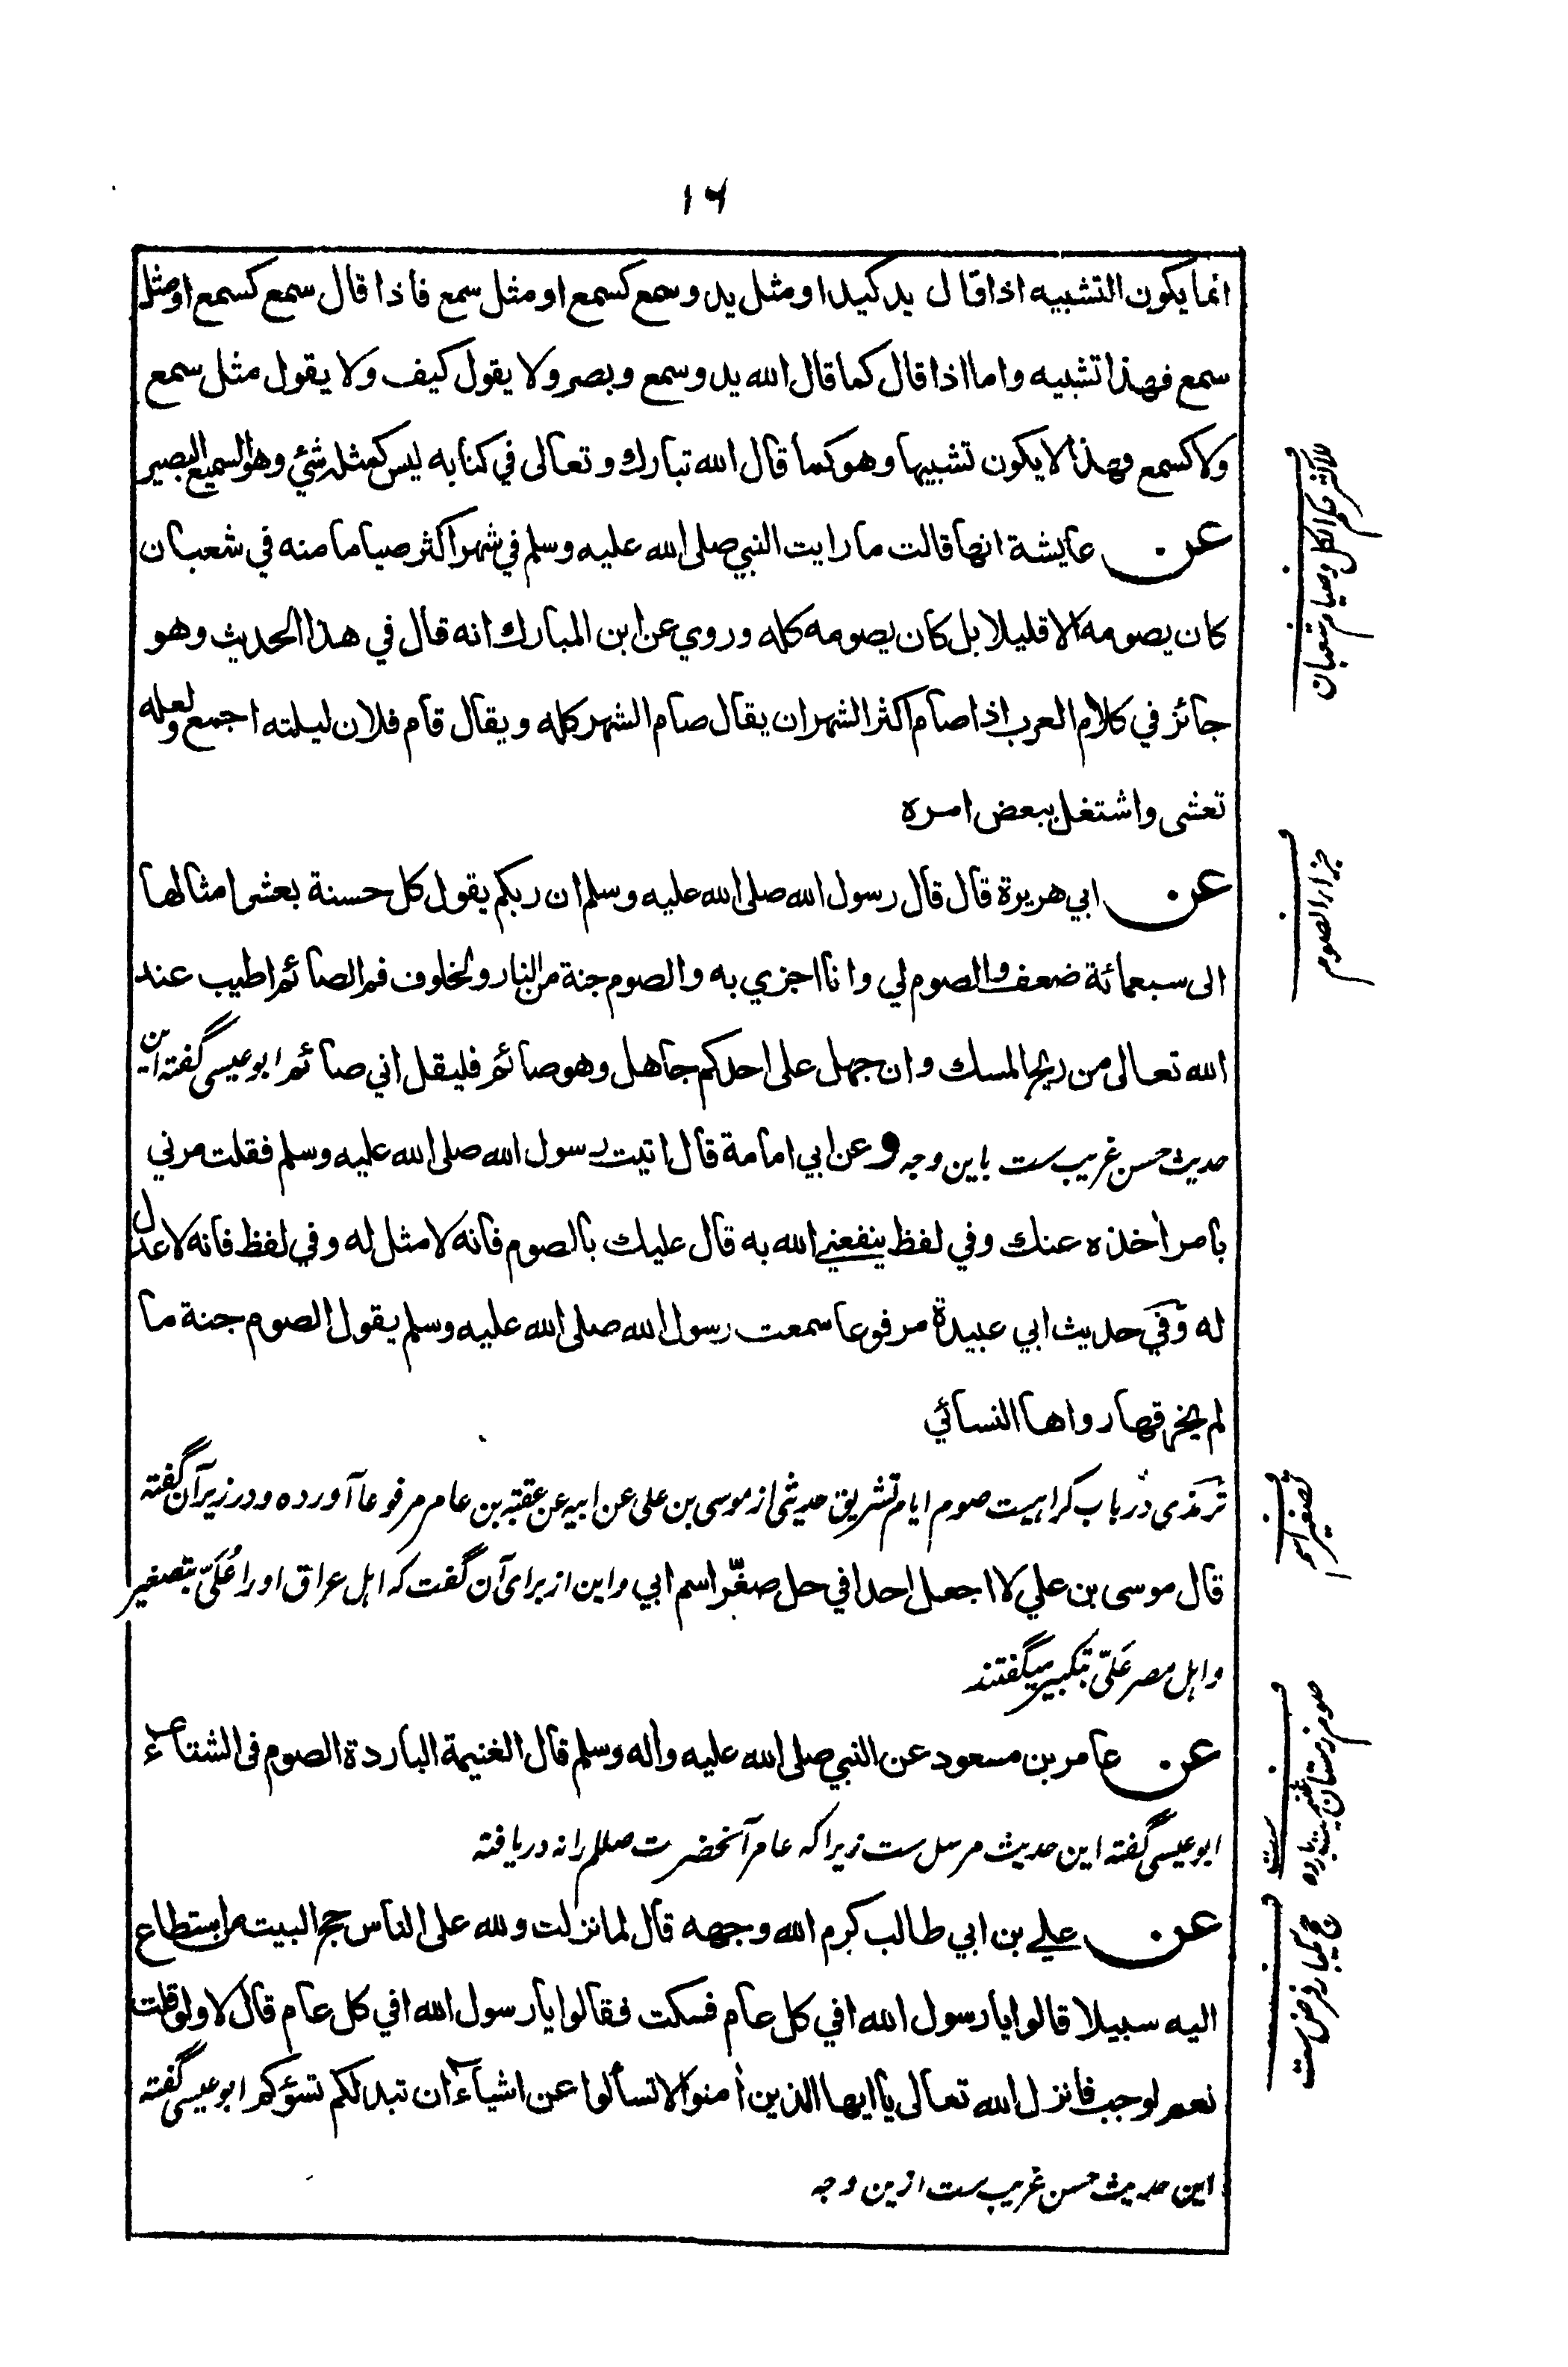 ۱۶
انما يكون التشبيه اذا قال يد كيد او مثل يد وسمع كسمع او مثل سمع فاذا قال سمع كسمع او مثل
سمع فهذا تشبيه واما اذا قال كما قال الله يد وسمع وبصر ولا يقول كيف ولا يقول مثل سمع
ولا كسمع فهذا لا يكون تشبيها وهو كما قال الله تبارك وتعالى في كتابه ليس كمثله شئ وهو السميع البصير
عن عايشة انها قالت ما رايت النبي صلى الله عليه وسلم في شهر اكثر صياما منه في شعبان
كان يصومه الا قليلا بل كان يصومه كله وروي عن ابن المبارك انه قال في هذا الحديث وهو
جائز في كلام العرب اذا صام اكثر الشهر ان يقال صام الشهر كله ويقال قام فلان ليلته اجمع ولعله
تعشى واشتغل ببعض امره
عن ابي هريرة قال قال رسول الله صلى الله عليه وسلم ان ربكم يقول كل حسنة بعشر امثالها
الى سبعمائة ضعف والصوم لي وانا اجزي به والصوم جنة من النار ولخلوف فم الصائم اطيب عند
الله تعالى من ريح المسك وان جهل على احدكم جاهل وهو صائم فليقل اني صائم ابو عیسی گفته این
حدیث حسن غریب ست باین وجه و عن ابي امامة قال اتيت رسول الله صلى الله عليه وسلم فقلت مرني
بامر أخذه عنك وفي لفظ ينفعني الله به قال عليك بالصوم فانه لا مثل له وفي لفظ فانه لا عدل
له وفي حديث ابي عبيدة مرفوعا سمعت رسول الله صلى الله عليه وسلم يقول الصوم جنة ما
لم يخرقها رواها النسائي
ترمذی در باب کراهیت صوم ایام تشریق حدیثی از موسی بن علی عن ابیه عن عقبة بن عامر مرفوعا آورده و در زیر آن گفته
قال موسى بن علي لا اجعل احدا في حل صغّر اسم ابي واین از برای آن گفت که اهل عراق او را عُلَیّ بتصغیر
واهل مصر عَلیّ بتکبیر میگفتند
عن عامر بن مسعود عن النبي صلى الله عليه واله وسلم قال الغنيمة الباردة الصوم فى الشتاء
ابو عیسی گفته این حدیث مرسل ست زیرا که عامر آنحضرت صللم را نه دریافته
عن علي بن ابي طالب كرم الله وجهه قال لما نزلت ولله على الناس حج البيت من استطاع
اليه سبيلا قالوا يا رسول الله افي كل عام فسكت فقالوا يا رسول الله افي كل عام قال لا ولو قلت
نعم لوجب فانزل الله تعالى يا ايها الذين أمنوا لا تسألوا عن اشياء ان تبد لكم تسؤكم ابو عیسی گفته
این حدیث حسن غریب ست ازین وجه
للاکثر حکم الکل وصیام شعبان
جزاء الصوم
تصغیر اسم
صوم زمستان غنیمت بارده ست
حج یکبار فرض ست